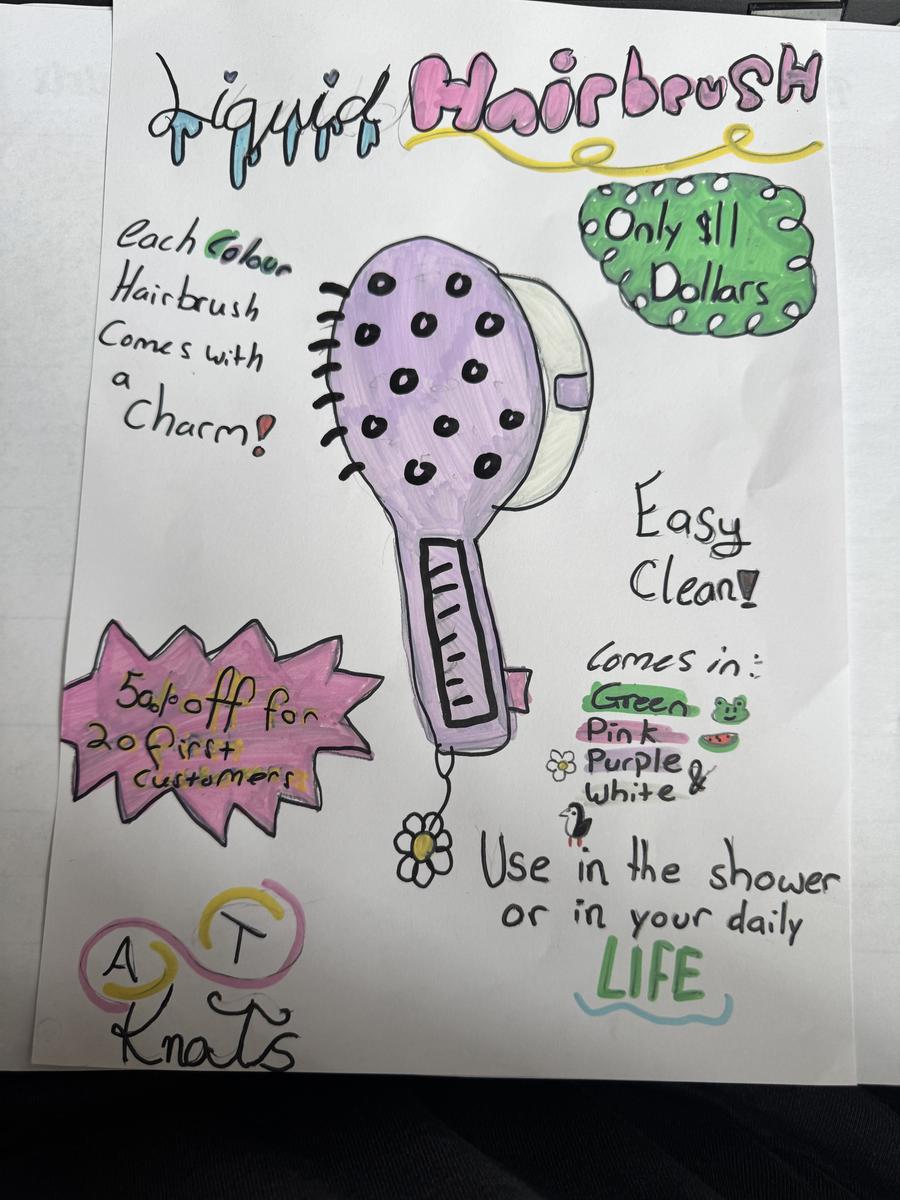 Liquid HairbrusH
Only $11
Dollars
each Colour
Hairbrush
Comes with
a
Charm!
Easy
Clean!
Comes in:
Green
Pink
Purple &
White
50% off for
20 first
customers
Use in the shower
or in your daily
LIFE
A T
KnaTs